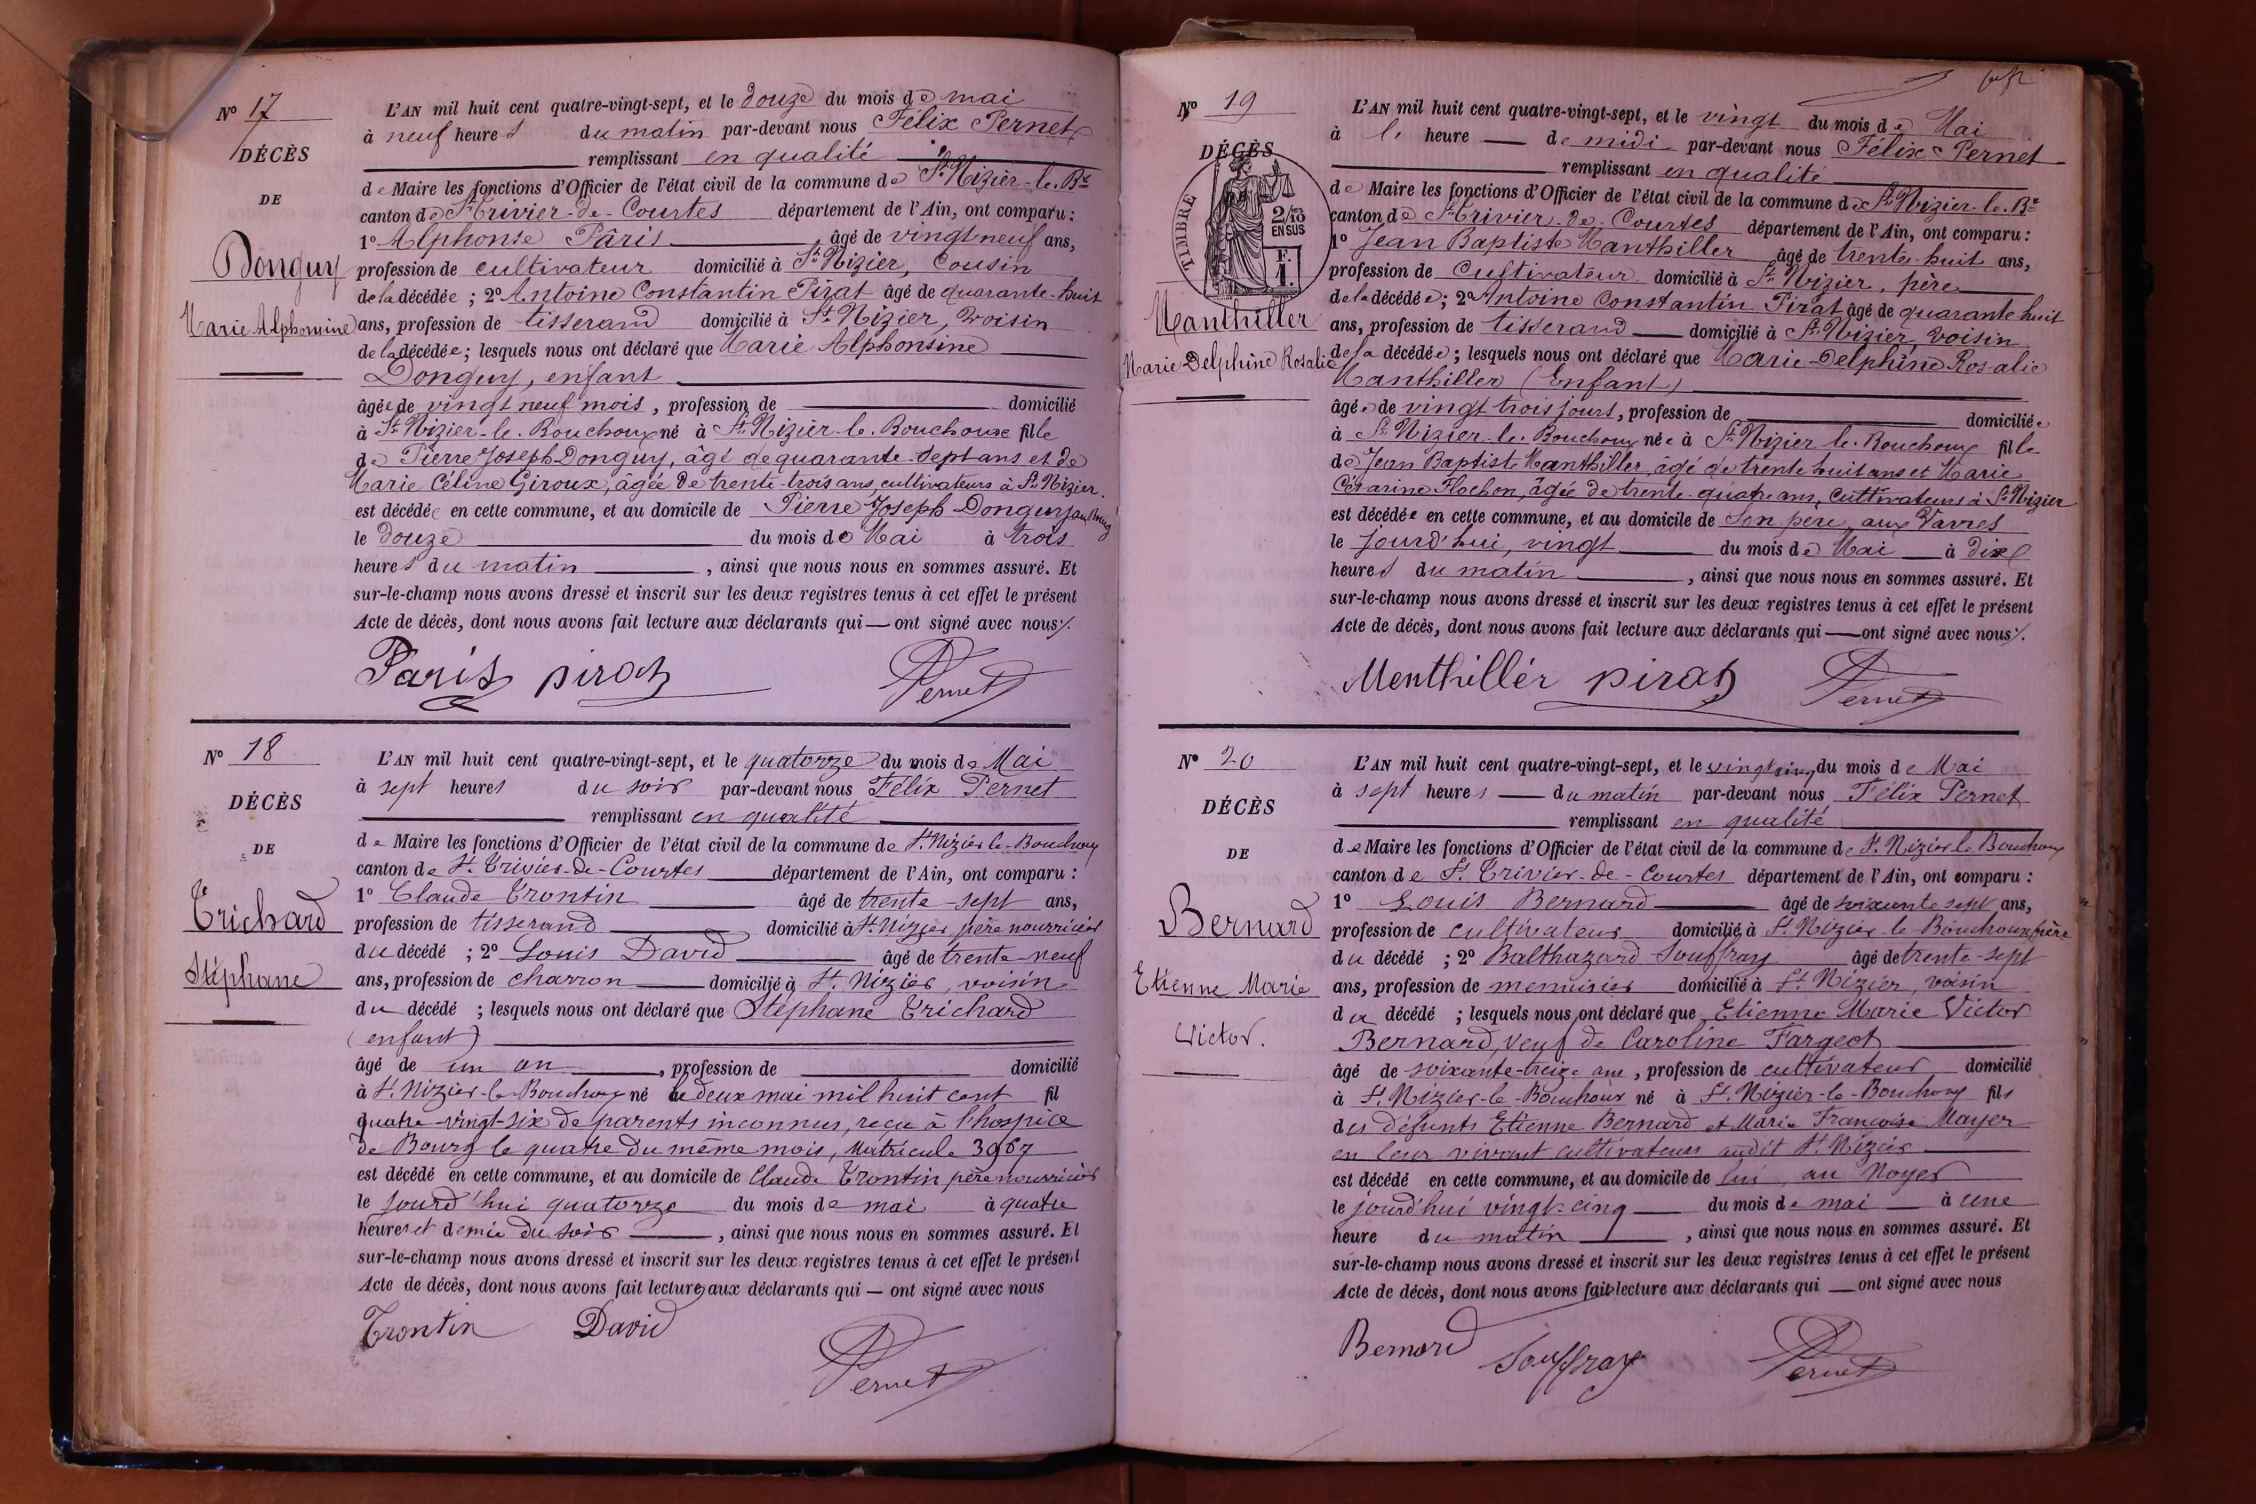 N° 17
DÉCÈS
DE
Donguy
Marie Alphonsine
L'AN mil huit cent quatre-vingt-sept, et le douze du mois de mai
à neuf heures du matin par-devant nous Félix Pernet
remplissant en qualité
de Maire les fonctions d'Officier de l'état civil de la commune de St Nizier-le-Bx
canton de St Trivier-de-Courtes département de l'Ain, ont comparu :
1° Alphonse Pâris âgé de vingt neuf ans,
profession de cultivateur domicilié à St Nizier, Cousin
de la décédée ; 2° Antoine Constantin Pirat âgé de quarante-huit
ans, profession de tisserand domicilié à St Nizier, voisin
de la décédée ; lesquels nous ont déclaré que Marie Alphonsine
Donguy, enfant
âgée de vingt neuf mois, profession de domicilié
à St Nizier-le-Bouchoux né à St Nizier-le-Bouchoux fille
de Pierre Joseph Donguy, âgé de quarante-sept ans et de
Marie Céline Giroux, âgée de trente-trois ans, cultivateurs à St Nizier.
est décédée en cette commune, et au domicile de Pierre Joseph Donguy
le douze du mois de Mai à trois
heures du matin , ainsi que nous nous en sommes assuré. Et
sur-le-champ nous avons dressé et inscrit sur les deux registres tenus à cet effet le présent
Acte de décès, dont nous avons fait lecture aux déclarants qui — ont signé avec nous ./.
Paris pirat Pernet
N° 18
DÉCÈS
DE
Trichard
Stéphane
L'AN mil huit cent quatre-vingt-sept, et le quatorze du mois de Mai
à sept heures du soir par-devant nous Félix Pernet
remplissant en qualité
de Maire les fonctions d'Officier de l'état civil de la commune de St. Nizier-le-Bouchoux
canton de St. Trivier-de-Courtes département de l'Ain, ont comparu :
1° Claude Trontin âgé de trente-sept ans,
profession de tisserand domicilié à St. Nizier, père nourricier
du décédé ; 2° Louis David âgé de trente-neuf
ans, profession de charron domicilié à St. Nizier, voisin
du décédé ; lesquels nous ont déclaré que Stéphane Trichard
(enfant)
âgé de un an , profession de domicilié
à St. Nizier-le-Bouchoux né le deux mai mil huit cent fil
quatre-vingt-six de parents inconnus, reçu à l'hospice
de Bourg le quatre du même mois, Matricule 3967
est décédé en cette commune, et au domicile de Claude Trontin père nourricier
le jourd'hui quatorze du mois de mai à quatre
heures et demie du soir , ainsi que nous nous en sommes assuré. Et
sur-le-champ nous avons dressé et inscrit sur les deux registres tenus à cet effet le présent
Acte de décès, dont nous avons fait lecture aux déclarants qui — ont signé avec nous
Trontin David Pernet
N° 19
DÉCÈS
TIMBRE
2/10
EN SUS
F.
1.
Manthiller
Marie Delphine Rosalie
L'AN mil huit cent quatre-vingt-sept, et le vingt du mois de Mai
à l' heure — de midi par-devant nous Félix Pernet
remplissant en qualité
de Maire les fonctions d'Officier de l'état civil de la commune de St Nizier-le-Bx
canton de St Trivier-de-Courtes département de l'Ain, ont comparu :
1° Jean Baptiste Manthiller âgé de trente-huit ans,
profession de Cultivateur domicilié à St Nizier, père
de la décédée ; 2° Antoine Constantin Pirat âgé de quarante huit
ans, profession de tisserand domicilié à St Nizier, voisin
de la décédée ; lesquels nous ont déclaré que Marie Delphine Rosalie
Manthiller (Enfant)
âgée de vingt trois jours, profession de domiciliée
à St Nizier-le-Bouchoux née à St Nizier le-Bouchoux fille
de Jean Baptiste Manthiller, âgé de trente huit ans et Marie
Césarine Flochon, âgée de trente-quatre ans, Cultivateurs à St Nizier
est décédée en cette commune, et au domicile de Son père, aux Vavres
le jourd'hui, vingt du mois de Mai à dix
heures du matin , ainsi que nous nous en sommes assuré. Et
sur-le-champ nous avons dressé et inscrit sur les deux registres tenus à cet effet le présent
Acte de décès, dont nous avons fait lecture aux déclarants qui — ont signé avec nous ./.
Menthillér pirat Pernet
N° 20
DÉCÈS
DE
Bernard
Etienne Marie
Victor.
L'AN mil huit cent quatre-vingt-sept, et le vingt cinq du mois de Mai
à sept heures — du matin par-devant nous Félix Pernet
remplissant en qualité
de Maire les fonctions d'Officier de l'état civil de la commune de St. Nizier le Bouchoux
canton de St. Trivier-de-Courtes département de l'Ain, ont comparu :
1° Louis Bernard âgé de soixante sept ans,
profession de cultivateur domicilié à St. Nizier-le-Bouchoux frère
du décédé ; 2° Balthazard Souffray âgé de trente-sept
ans, profession de menuisier domicilié à St. Nizier, voisin
du décédé ; lesquels nous ont déclaré que Etienne Marie Victor
Bernard, veuf de Caroline Fargeot
âgé de soixante-treize ans, profession de cultivateur domicilié
à St. Nizier-le-Bouchoux né à St. Nizier-le-Bouchoux fils
des défunts Etienne Bernard et Marie Françoise Mayer
en leur vivant cultivateurs audit St. Nizier
est décédé en cette commune, et au domicile de lui, au Noyer
le jourd'hui vingt-cinq du mois de mai — à une
heure du matin , ainsi que nous nous en sommes assuré. Et
sur-le-champ nous avons dressé et inscrit sur les deux registres tenus à cet effet le présent
Acte de décès, dont nous avons fait lecture aux déclarants qui — ont signé avec nous
Bernard Souffray Pernet